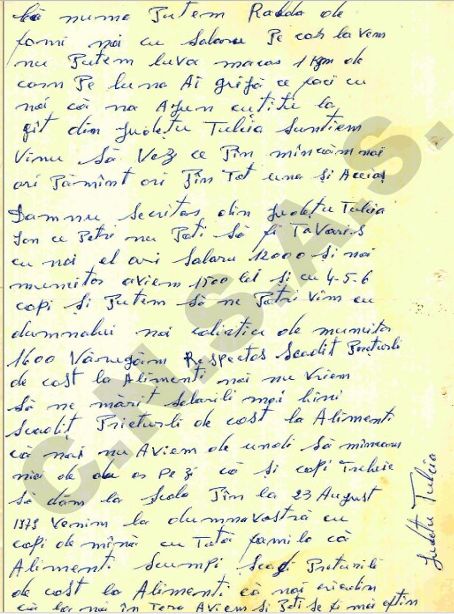 că numa Putem Rabda de
fomi noi cu Salaru Pe care la vem
nu Putem luva macar 1 kgm de
carn Pe luna Ai grijă ce faci cu
noi că na Ajuns cutitu la
gît din Judetu Tulcia suntiem
Vinu să Vez ce Pîn mîncăm noi
ori Pămînt ori Pîn Tot una și Aceiaș
Damnu Secritar din Judetu Tulcia
Ion ce Petri nu Poti să fi Tavarăs
cu noi el ari Salaru 12000 și noi
muncitor aviem 1500 lei si cu 4-5-6
copi si Putem să ne Potri vim cu
dumnalui noi calictie de muncitor
1600 Vărugăm Respectos Scadit Preturli
de cost la Alimenti noi nu Vriem
să ne mărit Salarili mai bini
scadiț Prieturli de cost la Alimenti
că noi nu Aviem de undi să mîncam
nici de do or Pe zi că și copi Trebuie
să dăm la școla Pîn la 23 August
1979 Venim la dumnavostră cu
copi de mînă cu Tată familia că
Alimenti scumpi Scad Preturili
de cost la Alimenti că noi
ca la noi în Tera Aviem si Poti se fi mai eftin
Judetu Tulcia
C.N.S.A.S.